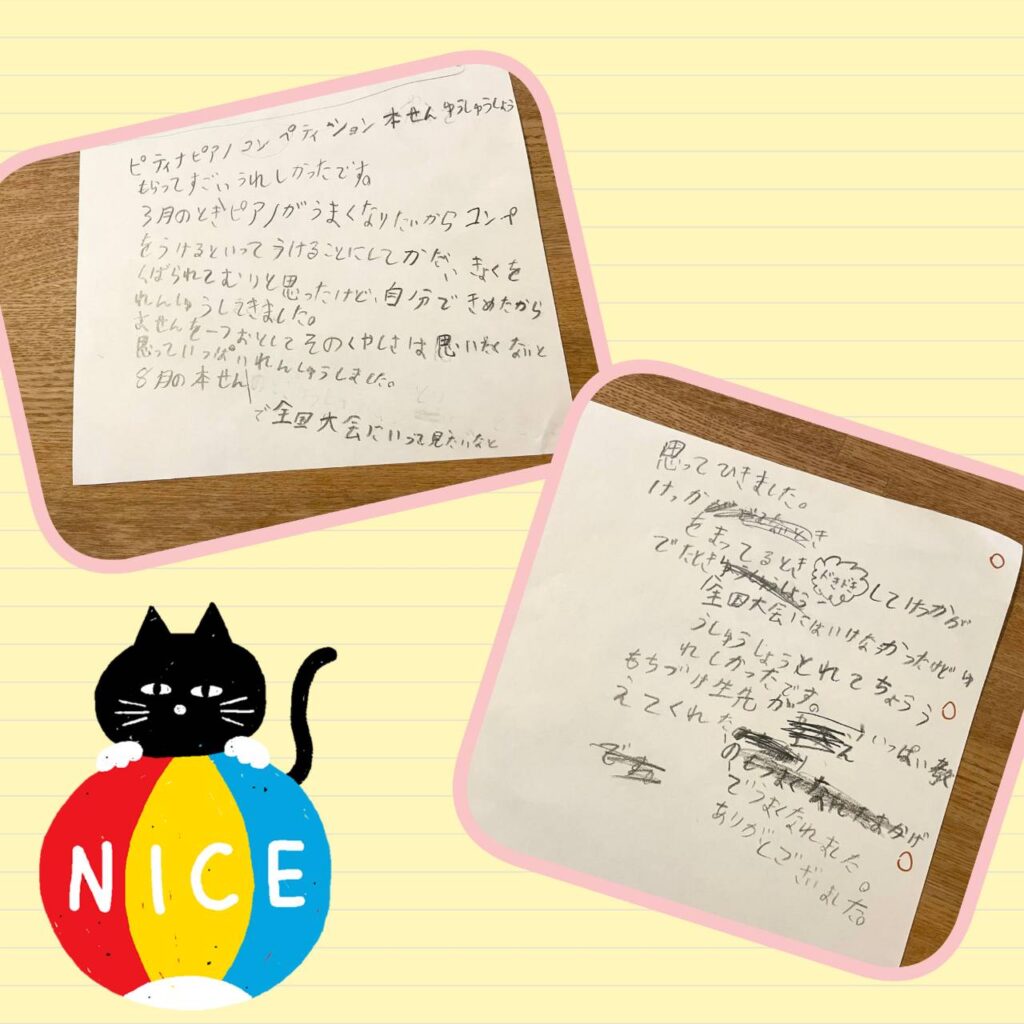 ピティナピアノコンペティション本せんゆうしゅうしょう
もらってすごいうれしかったです。
3月のときピアノがうまくなりたいからコンペ
をうけるといってうけることにしてかだいきょくを
くばられてむりと思ったけど、自分できめたから
れんしゅうしてきました。
よせんを一つおとしてそのくやしさは思いたくないと
思っていっぱいれんしゅうしました。
8月の本せん
で全国大会にいって見たいなと
思ってひきました。
けっか
をまってるときドキドキしてけっかが
でたとき
全国大会にはいけなかったけどゆ
うしゅうしょうとれてちょうう
れしかったです。
もちづけ生先がいっぱい教
えてくれた
のおかげ
でうまくなれました。
ありがとございました。
NICE